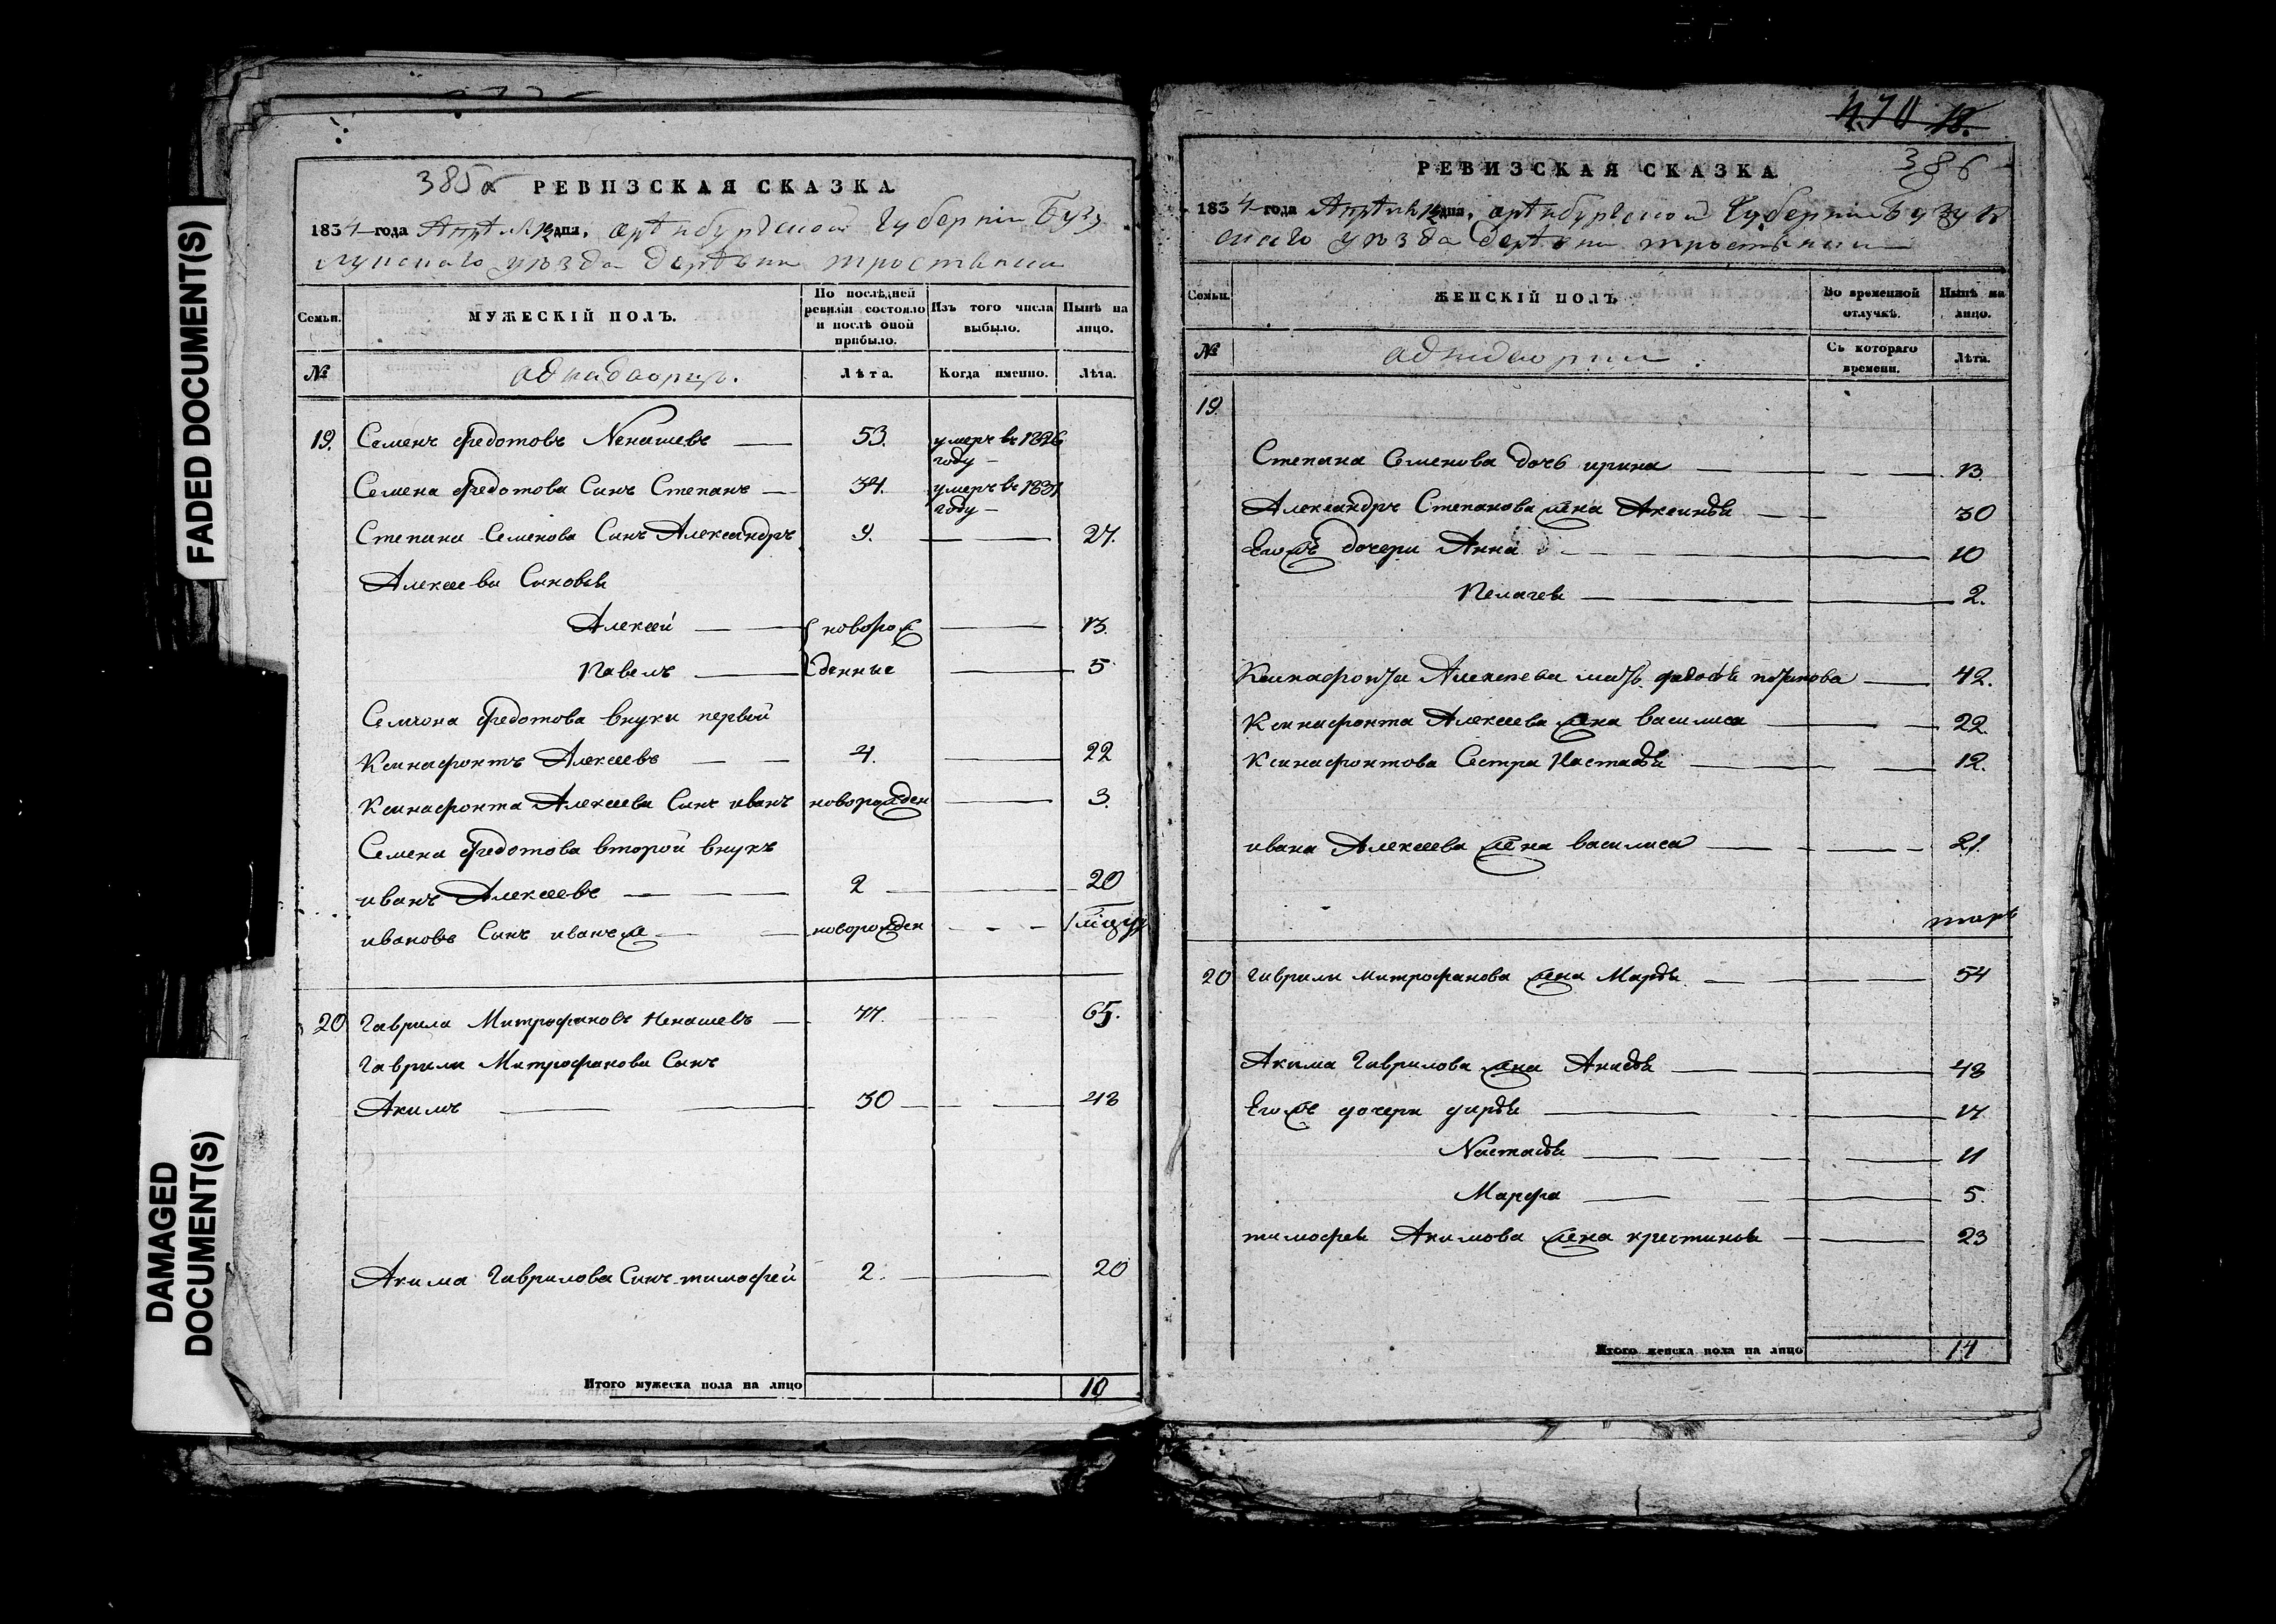 FADED DOCUMENT(S)
DAMAGED
DOCUMENT(S)
385 РЕВИЗСКАЯ СКАЗКА
1834 года Апреля дня. аренбургской Губернии Бузу
лускаго уезда деревни тростянки
Семьи.
МУЖЕСКІЙ ПОЛЪ.
По послѣдней ревизіи состояло и послѣ оной прибыло.
Изъ того числа выбыло.
Нынѣ на лицо.
№
аднадворцы.
Лѣта.
Когда именно.
Лѣта.
19. Семенъ Федотовъ Ненашевъ 53. умеръ въ 1826
году
Семена Федотова Сынъ Степанъ 34. умеръ въ 1831
году
Степана Семенова Сынъ Александръ 9. 27.
Алексеева Сыновья
Алексей новорож 13.
Павелъ денные 5
Семиона Федотова внуки первой
Ксинафонтъ Алексеевъ 4. 22
Ксинафонта Алексеева Сынъ иванъ новорожден 3.
Семена Федотова второй внукъ
иванъ Алексеевъ 2 20
ивановъ Сынъ иванъ же новорожден
20 Гаврила Митрофановъ Ненашевъ 47. 65.
Гаврилы Митрофанова Сынъ
Акимъ 30 48
Акима Гаврилова Сынъ тимофей 2. 20
Итого мужеска пола на лицо 10
470 18.
РЕВИЗСКАЯ СКАЗКА 386
1834 года Апреля дня. аренбургской Губернии Бузул
скаго уезда деревни тростянки
Семьи.
ЖЕНСКІЙ ПОЛЪ
Во временной отлучкѣ.
Нынѣ на лицо.
№
аднадворки
Съ котораго времени.
Лѣта.
19.
Степана Семенова дочь ирина 13.
Александръ Степанова жена Аксинья 30
Егожъ дочери Анна 10
Пелагея 2.
Ксинафонта Алексеева мать 42.
Ксинафонта Алексеева жена василиса 22.
Ксинафонтова Сестра Настасья 12.
ивана Алексеева жена василиса 21.
20 Гаврилы митрофанова жена Марья 54
Акима Гаврилова жена Анисья 48
Егожъ дочери дарья 17.
Настасья 11
Марфа 5.
тимофея Акимова жена крестинья 23
Итого женска пола на лицо 14